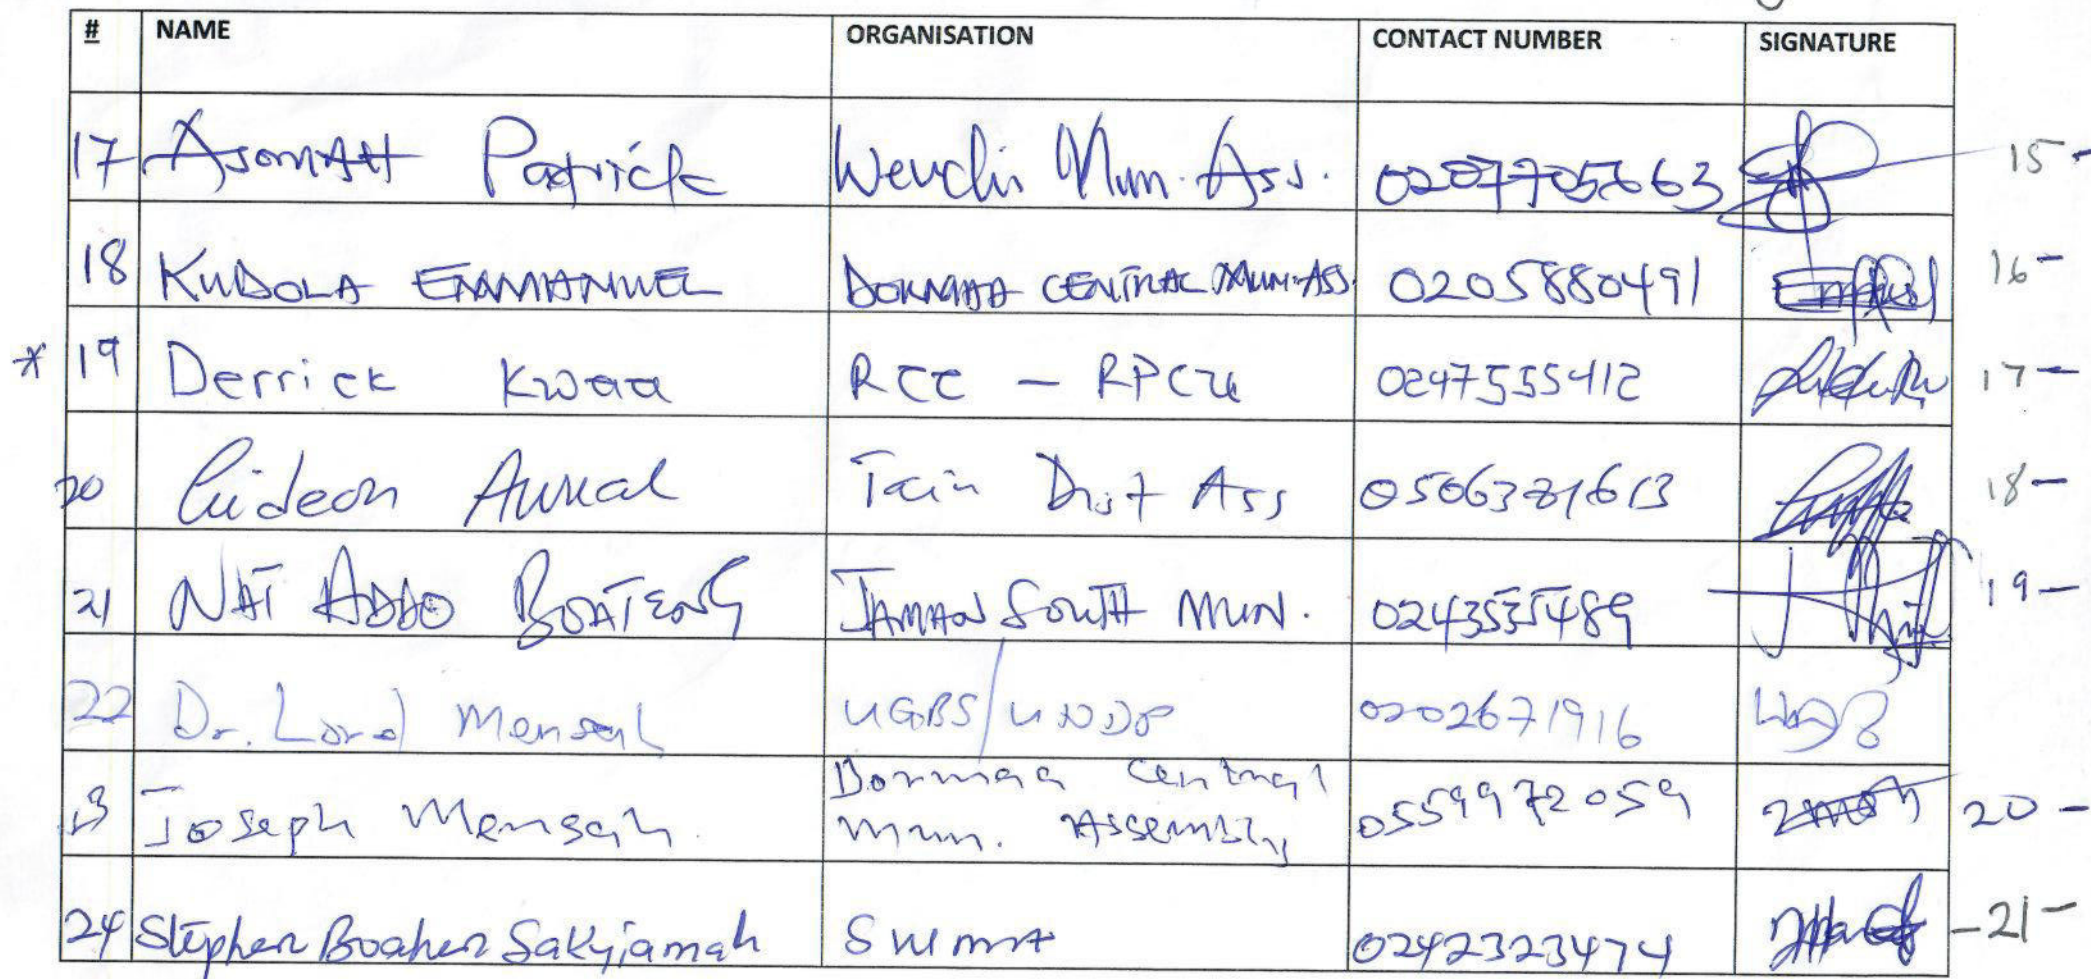 # NAME ORGANISATION CONTACT NUMBER SIGNATURE
17 Asomah Patrick Wenchi Mun. Ass. 15 -
18 KUDOLA EMMANUEL DORMAA CENTRAL MUN. ASS. 0205880491 16 -
* 19 Derrick Kwaa RCC - RPCU 0247555412 17 -
20 Gideon Tain Dist Ass 18 -
21 NAT ADDO BOATENG JAMAN SOUTH MUN. 19 -
22 Dr. Lord Mensah UGBS/UNDP 0202671916
23 Joseph Mensah. Dormaa Central
Mun. Assembly 0559972059 20 -
24 Stephen Boahen Sakyiamah SWMA 0242323474 - 21 -